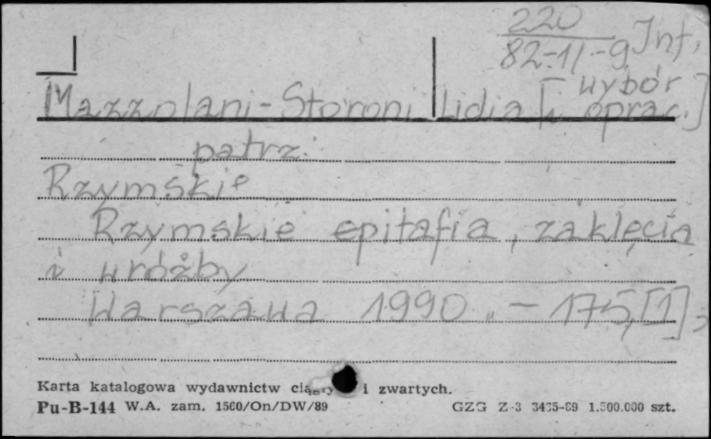 220
82-11-9 Inf.
Mazzolani-Storoni Lidia [wybór
i oprac.]
patrz:
Rzymskie
Rzymskie epitafia, zaklęcia
i wróżby
Warszawa 1990. – 175,[1]
Karta katalogowa wydawnictw i zwartych.
Pu-B-144 W.A. zam. 1560/On/DW/89 GZG Z-3 3435-89 1.500.000 szt.